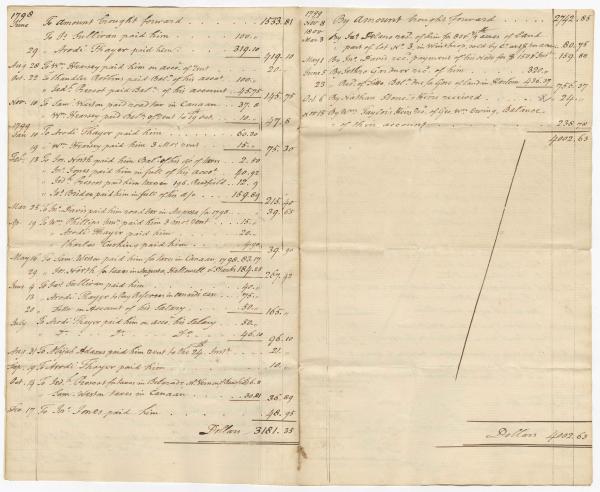 1798
June To Amount brought forward 1533.81
To Ja. Sullivan paid him 100..
29 " Arodi Thayer paid him 319.10 419.10
Aug 28 To Wm. Hearsey paid him on acco. of rent 20..
Oct. 22 To Chandler Robbins paid Bal. of his acco. 100..
" Jed. Prescot paid Bal. of his account 45.75 145.75
Nov. 10 To Sam. Weston paid road tax in Canaan 37.8
" Wm. Hearsey paid Bal. of rent to 19 Oct. 10.. 47.8
1799
Jan 10 To Arodi Thayer paid him 60.30
19 " Wm. Hearsey paid him 3 Mos. rent 15.. 75.30
Feb. 13 To Jos. North paid him Bal. of his a/c of taxes 2.50
" Jno. Jones paid him in full of his acco. 40.92
" Jed. Prescot paid him taxes in 1798, Readfield 12.9
" Jas. Bridge paid him in full of his a/c 159.89 215.40
Mar 25 To Jno. Davis paid him road tax in Augusta for 1798 39.65
Ap. 19 To Wm. Phillips Junr. paid him 3 mos. rent 15..
" Arodi Thayer paid him 20..
" Charles Cushing paid him 4.90 39.90
May 16 To Sam. Weston paid him for taxes in Canaan 1798. 83.17
29 " Jos. North for taxes in Augusta, Hallowell & 184.25 267.42
June 4 To Jas. Sullivan paid him 40..
13 " Arodi Thayer 75..
20 " Ditto on Account of his Salary 50.. 165..
July To Arodi Thayer paid him on acco. his Salary 50..
" Do. Do. Do. 46.10 96.10
Aug. 31 To Abijah Adams paid him rent to the 24. Inst. 21..
Sep. 19 To Arodi Thayer paid him 10..
Oct. 14 To Jed. Prescot for taxes in Belgrade, Mt. Vernon
" Sam. Weston taxes in Canaan 30.81 36.89
Dec. 17 To Jno. Jones paid him 48.95
Dollars 3181.35
1799
Nov 8 By Amount brought forward 2742.85
1800
Mar 3 By Jas. recd. of him for of Land
part of Lot No. 3, in Winthrop, sold by 80.75
May 1 By Jno. Davis recd. payment of his Note for 159.88
June 5 By Jethro Gardner recd. of him 320..
23 Recd. of for of land in Harlem 436.37 756.37
Oct 6 By Nathan Stone's Horse received 24..
Nov 15 By Wm. Taylor's Heirs recd. of Geo. Wm. Erving, Balance
of their account 238.78
4002.63
Dollars 4002.63